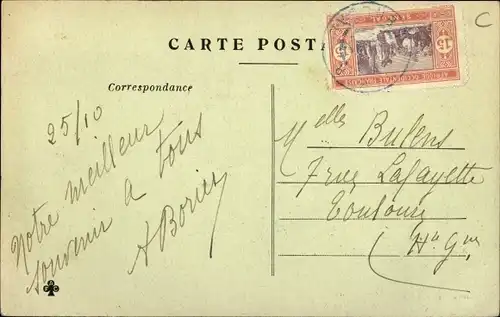 CARTE POSTA
C
SENEGAL
15 15
AFRIQUE OCCIDENTALE FRANÇAISE
Correspondance
25/10
Notre meilleur
souvenir à tous
A Borier
Melles Bulens
7 rue Lafayette
Toulouse
Hte Gne